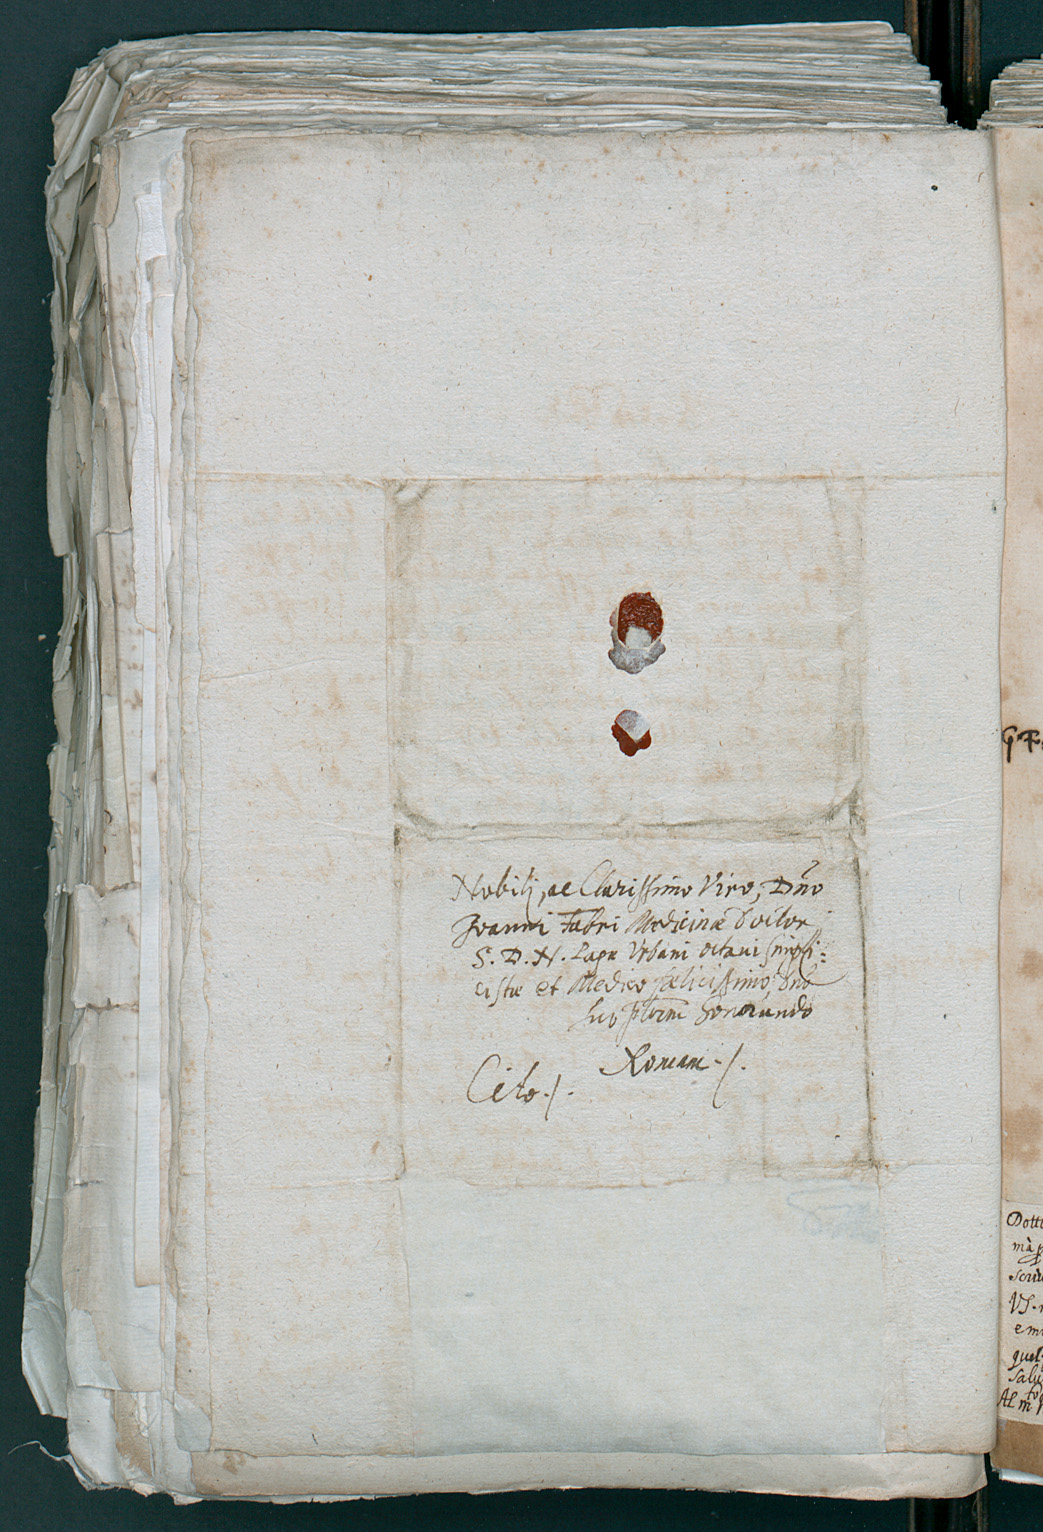 Nobili, ac Clarissimo Viro, Dno
Joanni Fabri Medicinæ Doctori
S. D. N. Papæ Urbani Octavi simpli:
cistæ et Medico fælicissimo, Dno
suo honorando
Romam ./.
Cito ./.
Dotto
mà
scriv
VS.
e m
quel
salu
to
Al m